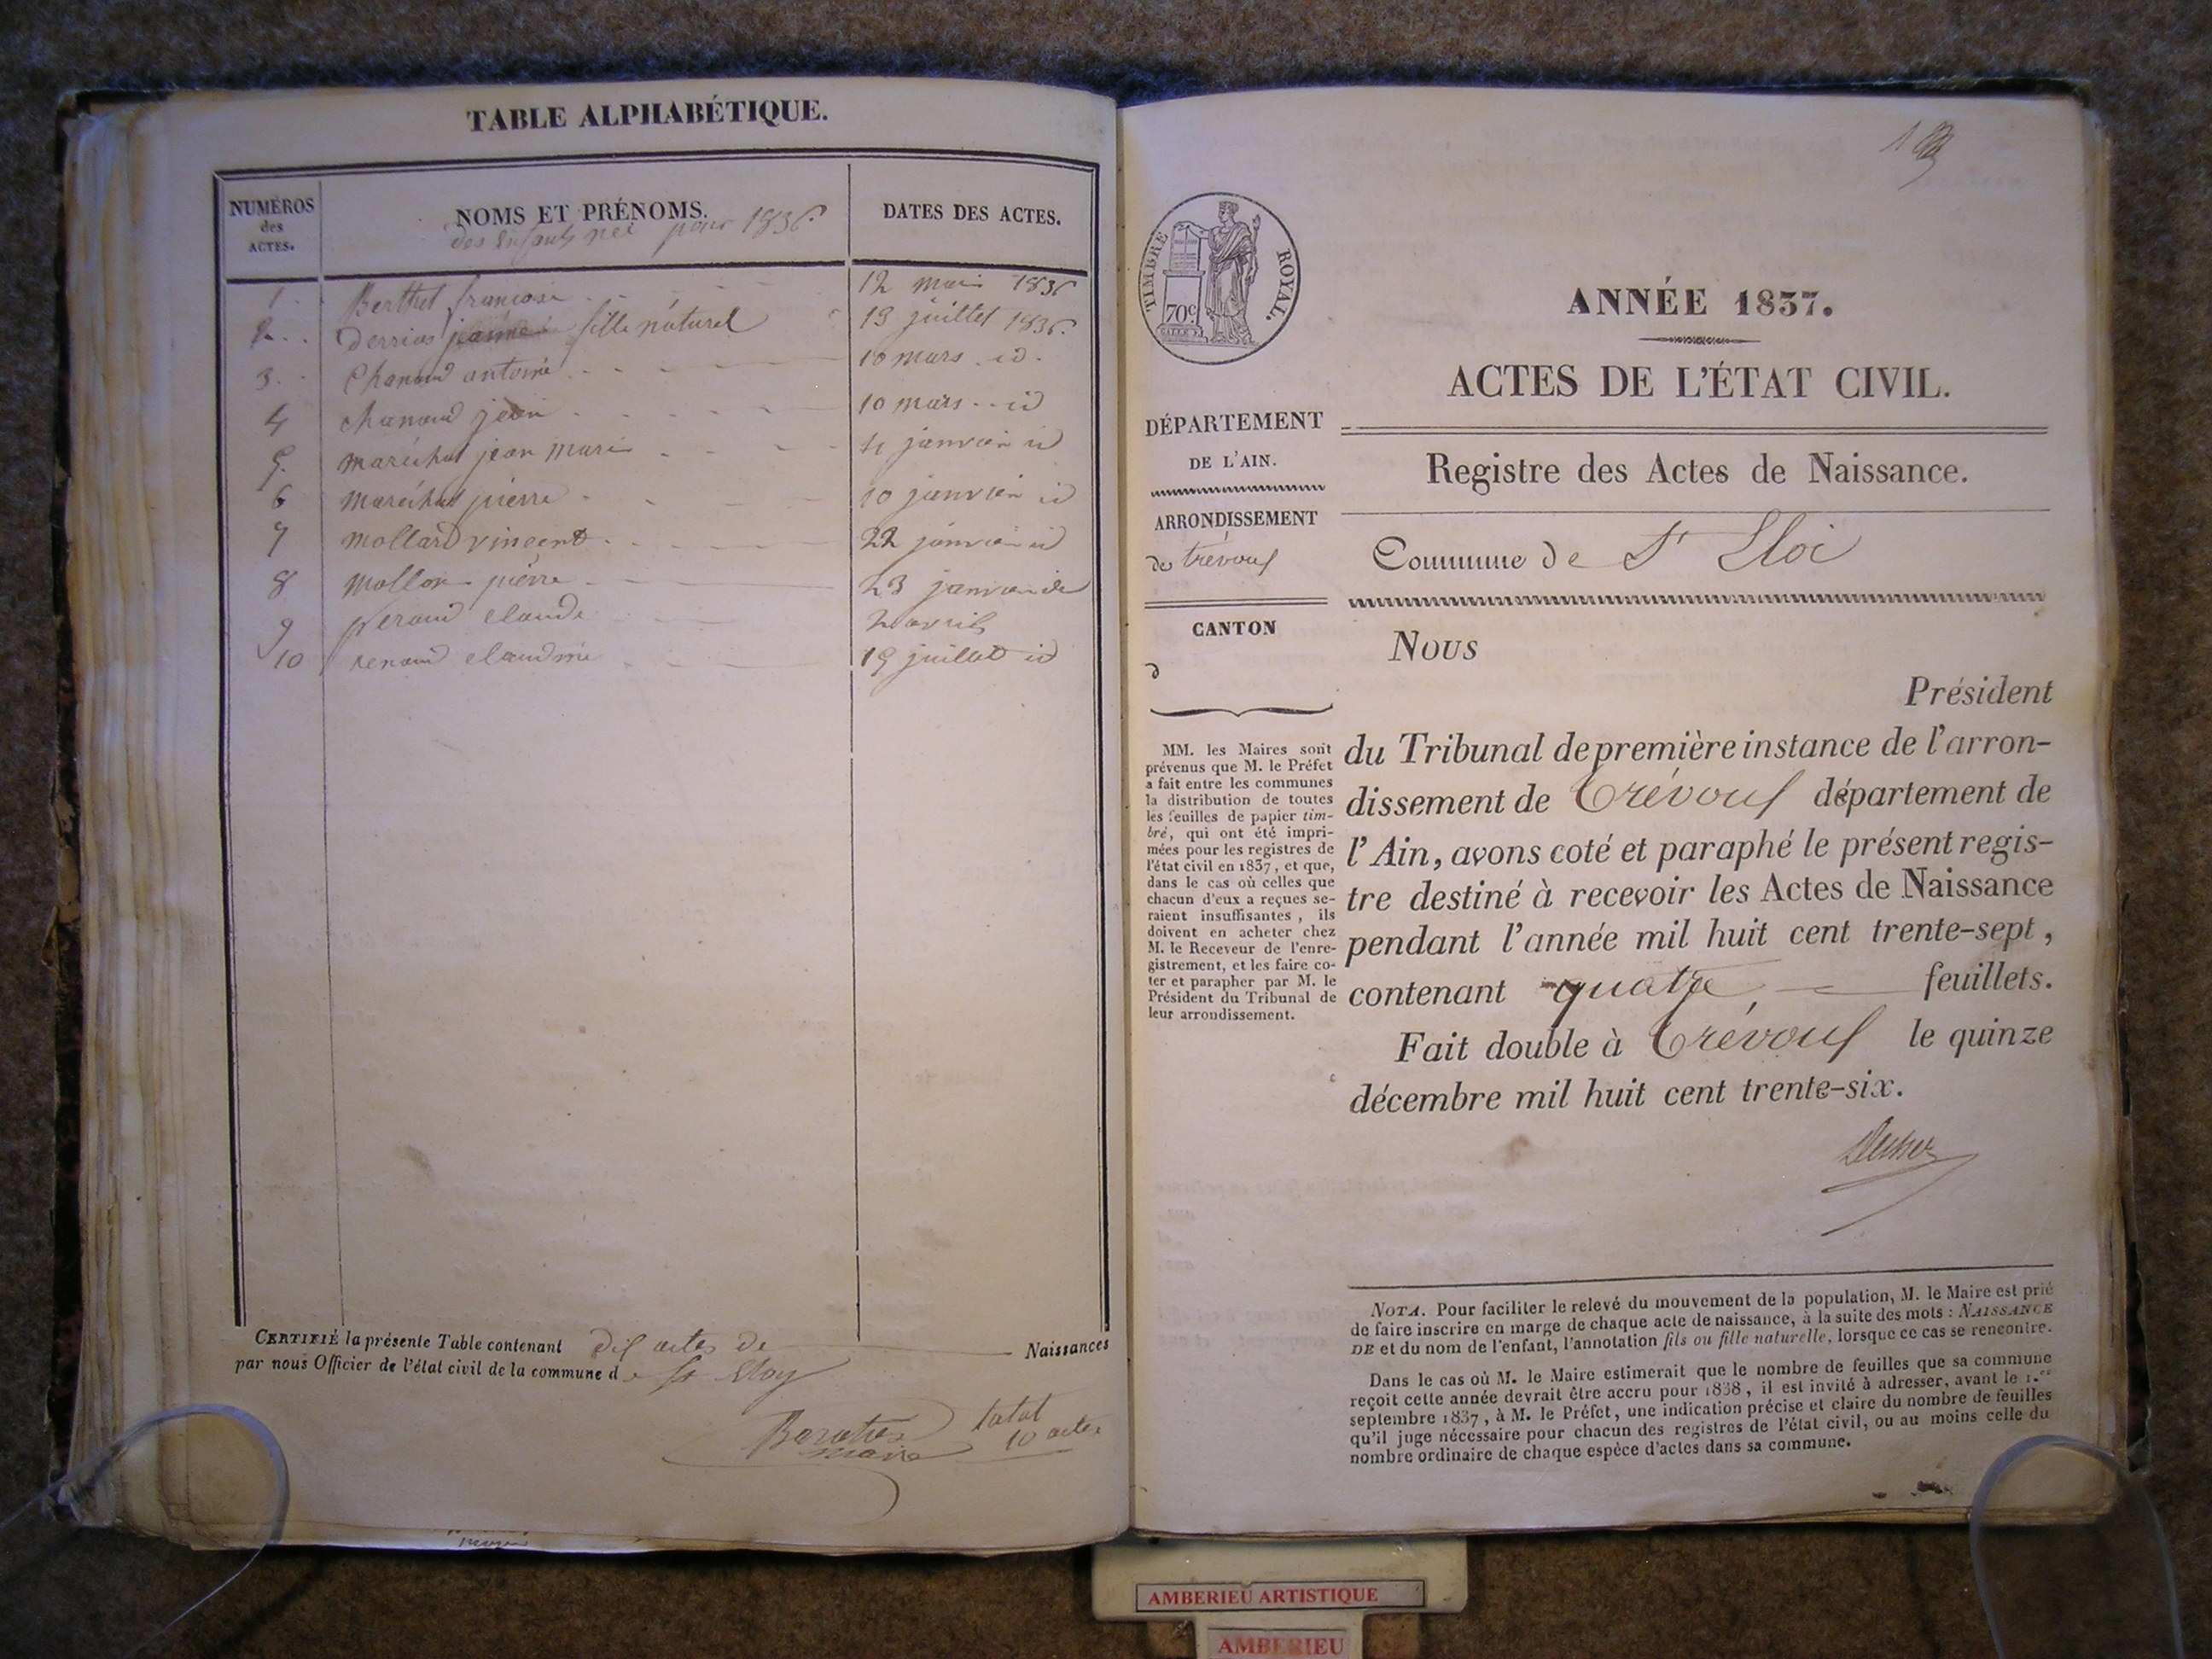 TABLE ALPHABÉTIQUE.
NUMÉROS des ACTES.
NOMS ET PRÉNOMS.
des Enfants nés pour 1836
DATES DES ACTES.
1 Berthet françoise 12 mai 1836
2 fille naturel 13 juillet 1836
3 Chanaud antoine 10 mars id
4 chanaud jean 10 mars id
5 maréchal jean marie 4 janvier id
6 maréchal pierre 10 janvier id
7 mollard vincent 22 janvier id
8 mollon pierre 23 janvier
9 peraud claude 2 avril
10 renaud claudine 19 juillet id
CERTIFIÉ la présente Table contenant dix actes de Naissances
par nous Officier de l'état civil de la commune de St Eloy
total
maire 10 actes
TIMBRE ROYAL.
70c
ANNÉE 1837.
ACTES DE L'ÉTAT CIVIL.
DÉPARTEMENT
DE L'AIN.
Registre des Actes de Naissance.
ARRONDISSEMENT
de trévoux
Commune de St Eloi
CANTON
d
Nous
Président
du Tribunal de première instance de l'arron-
dissement de Trévoux département de
l'Ain, avons coté et paraphé le présent regis-
tre destiné à recevoir les Actes de Naissance
pendant l'année mil huit cent trente-sept,
contenant quatre feuillets.
Fait double à Trévoux le quinze
décembre mil huit cent trente-six.
MM. les Maires sont
prévenus que M. le Préfet
a fait entre les communes
la distribution de toutes
les feuilles de papier tim-
bré, qui ont été impri-
mées pour les registres de
l'état civil en 1837, et que,
dans le cas où celles que
chacun d'eux a reçues se-
raient insuffisantes, ils
doivent en acheter chez
M. le Receveur de l'enre-
gistrement, et les faire co-
ter et parapher par M. le
Président du Tribunal de
leur arrondissement.
NOTA. Pour faciliter le relevé du mouvement de la population, M. le Maire est prié
de faire inscrire en marge de chaque acte de naissance, à la suite des mots : NAISSANCE
DE et du nom de l'enfant, l'annotation fils ou fille naturelle, lorsque ce cas se rencontre.
Dans le cas où M. le Maire estimerait que le nombre de feuilles que sa commune
reçoit cette année devrait être accru pour 1838, il est invité à adresser, avant le 1.er
septembre 1837, à M. le Préfet, une indication précise et claire du nombre de feuilles
qu'il juge nécessaire pour chacun des registres de l'état civil, ou au moins celle du
nombre ordinaire de chaque espèce d'actes dans sa commune.
AMBERIEU ARTISTIQUE
AMBERIEU